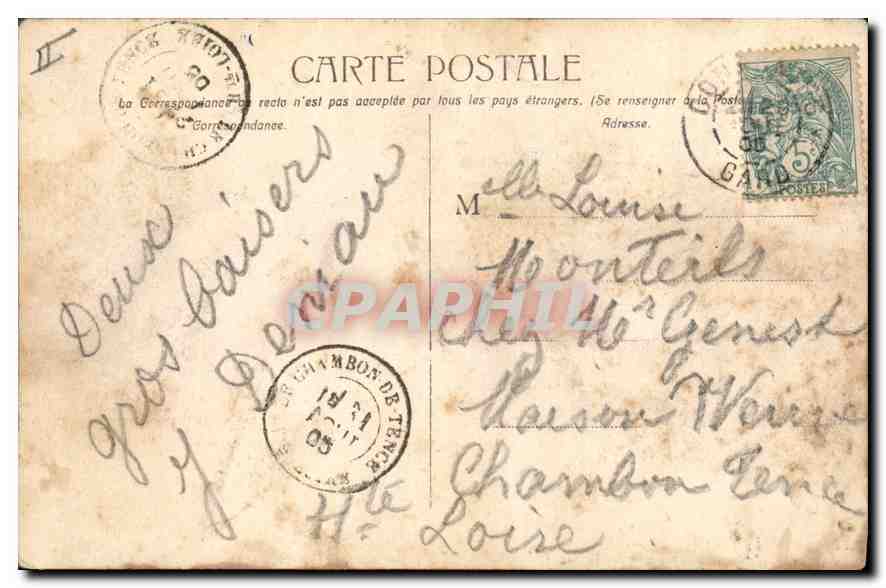 II
CARTE POSTALE
La Correspondance au recto n'est pas acceptée par tous les pays étrangers. (Se renseigner à la Poste)
Correspondance.
Adresse.
5
POSTES
GARD
Deux
gros baisers
Y
CPAPHIL
LE CHAMBON-DE-TENCE
18 31
AOUT
05
Melle Louise
Monteils
Chez Mr Genest
Maison
Chambon Tence
Hte Loire